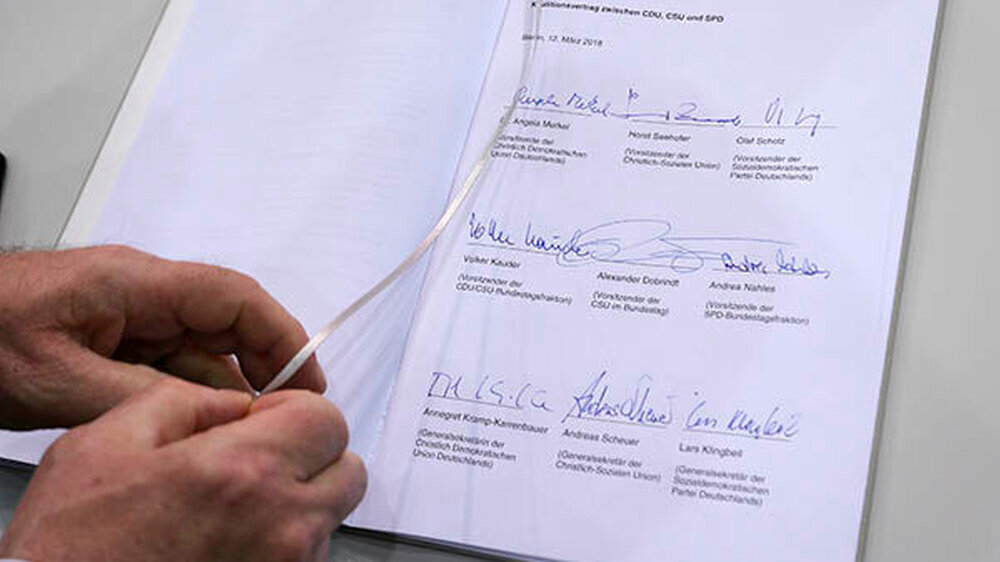 Koalitionsvertrag zwischen CDU, CSU und SPD
Berlin, 12. März 2018
Angela Merkel
Horst Seehofer
Olaf Scholz
(Vorsitzende der
Christlich Demokratischen
Union Deutschlands)
(Vorsitzender der
Christlich-Sozialen Union)
(Vorsitzender der
Sozialdemokratischen
Partei Deutschlands)
Volker Kauder
Alexander Dobrindt
Andrea Nahles
Volker Kauder
(Vorsitzender der
CDU/CSU-Bundestagsfraktion)
Alexander Dobrindt
(Vorsitzender der
CSU im Bundestag)
Andrea Nahles
(Vorsitzende der
SPD-Bundestagsfraktion)
Andreas Scheuer
Lars Klingbeil
Annegret Kramp-Karrenbauer
(Generalsekretärin der
Christlich Demokratischen
Union Deutschlands)
Andreas Scheuer
(Generalsekretär der
Christlich-Sozialen Union)
Lars Klingbeil
(Generalsekretär der
Sozialdemokratischen
Partei Deutschlands)